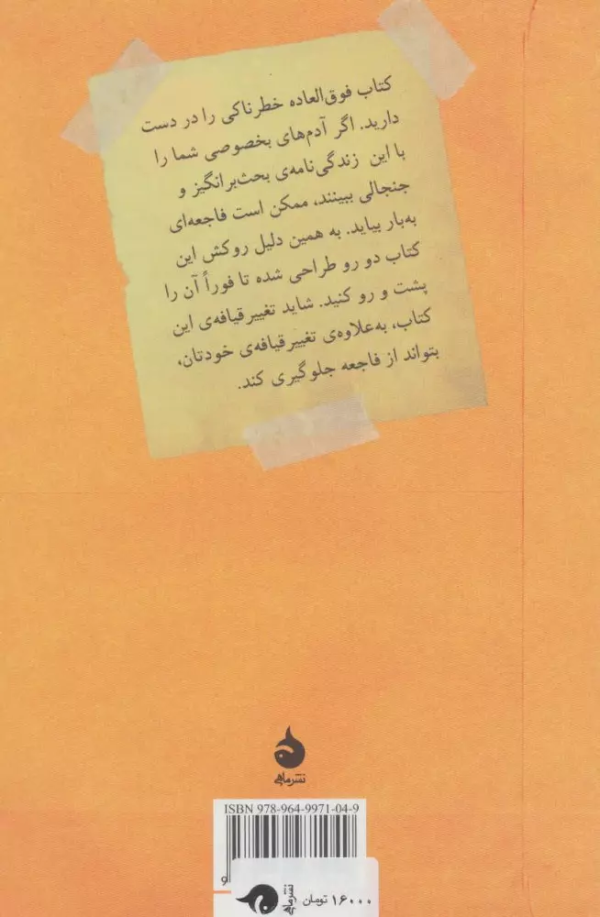 کتاب فوق‌العاده خطرناکی را در دست
دارید. اگر آدم‌های بخصوصی شما را
با این زندگی‌نامه‌ی بحث‌برانگیز و
جنجالی ببینند، ممکن است فاجعه‌ای
به‌بار بیاید. به همین دلیل روکش این
کتاب دو رو طراحی شده تا فوراً آن را
پشت و رو کنید. شاید تغییرقیافه‌ی این
کتاب، به‌علاوه‌ی تغییرقیافه‌ی خودتان،
بتواند از فاجعه جلوگیری کند.
نشرماهی
ISBN 978-964-9971-04-9
نشرماهی
۱۶۰۰۰ تومان